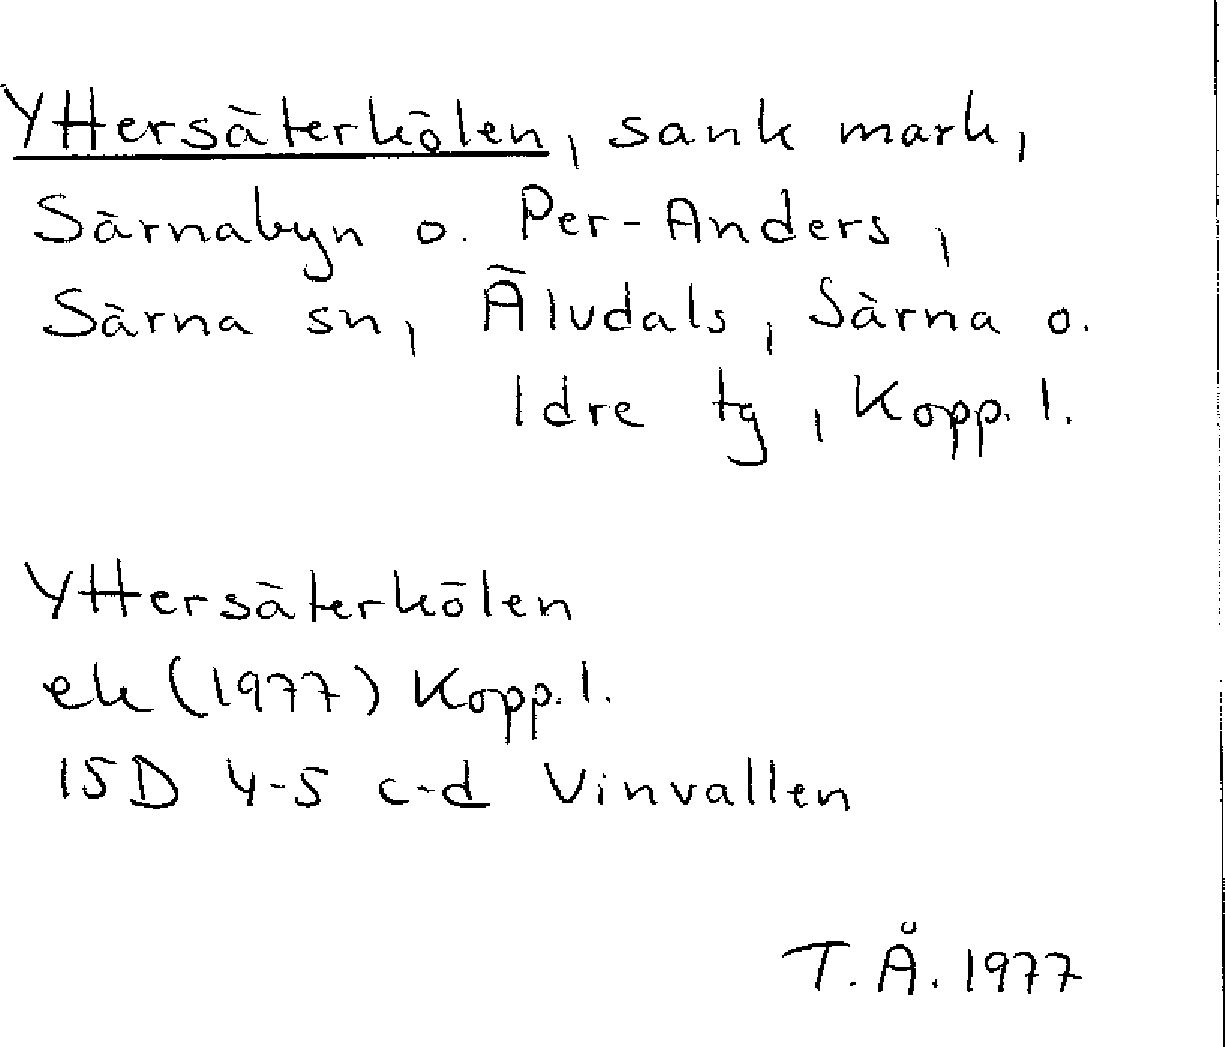 Yttersäterkölen, sank mark,
Särnabyn o. Per-Anders,
Särna sn, Älvdals, Särna o.
Idre tg, Kopp. l.
Yttersäterkölen
ek (1977) Kopp. l.
15D 4-5 c-d Vinvallen
T.Å. 1977